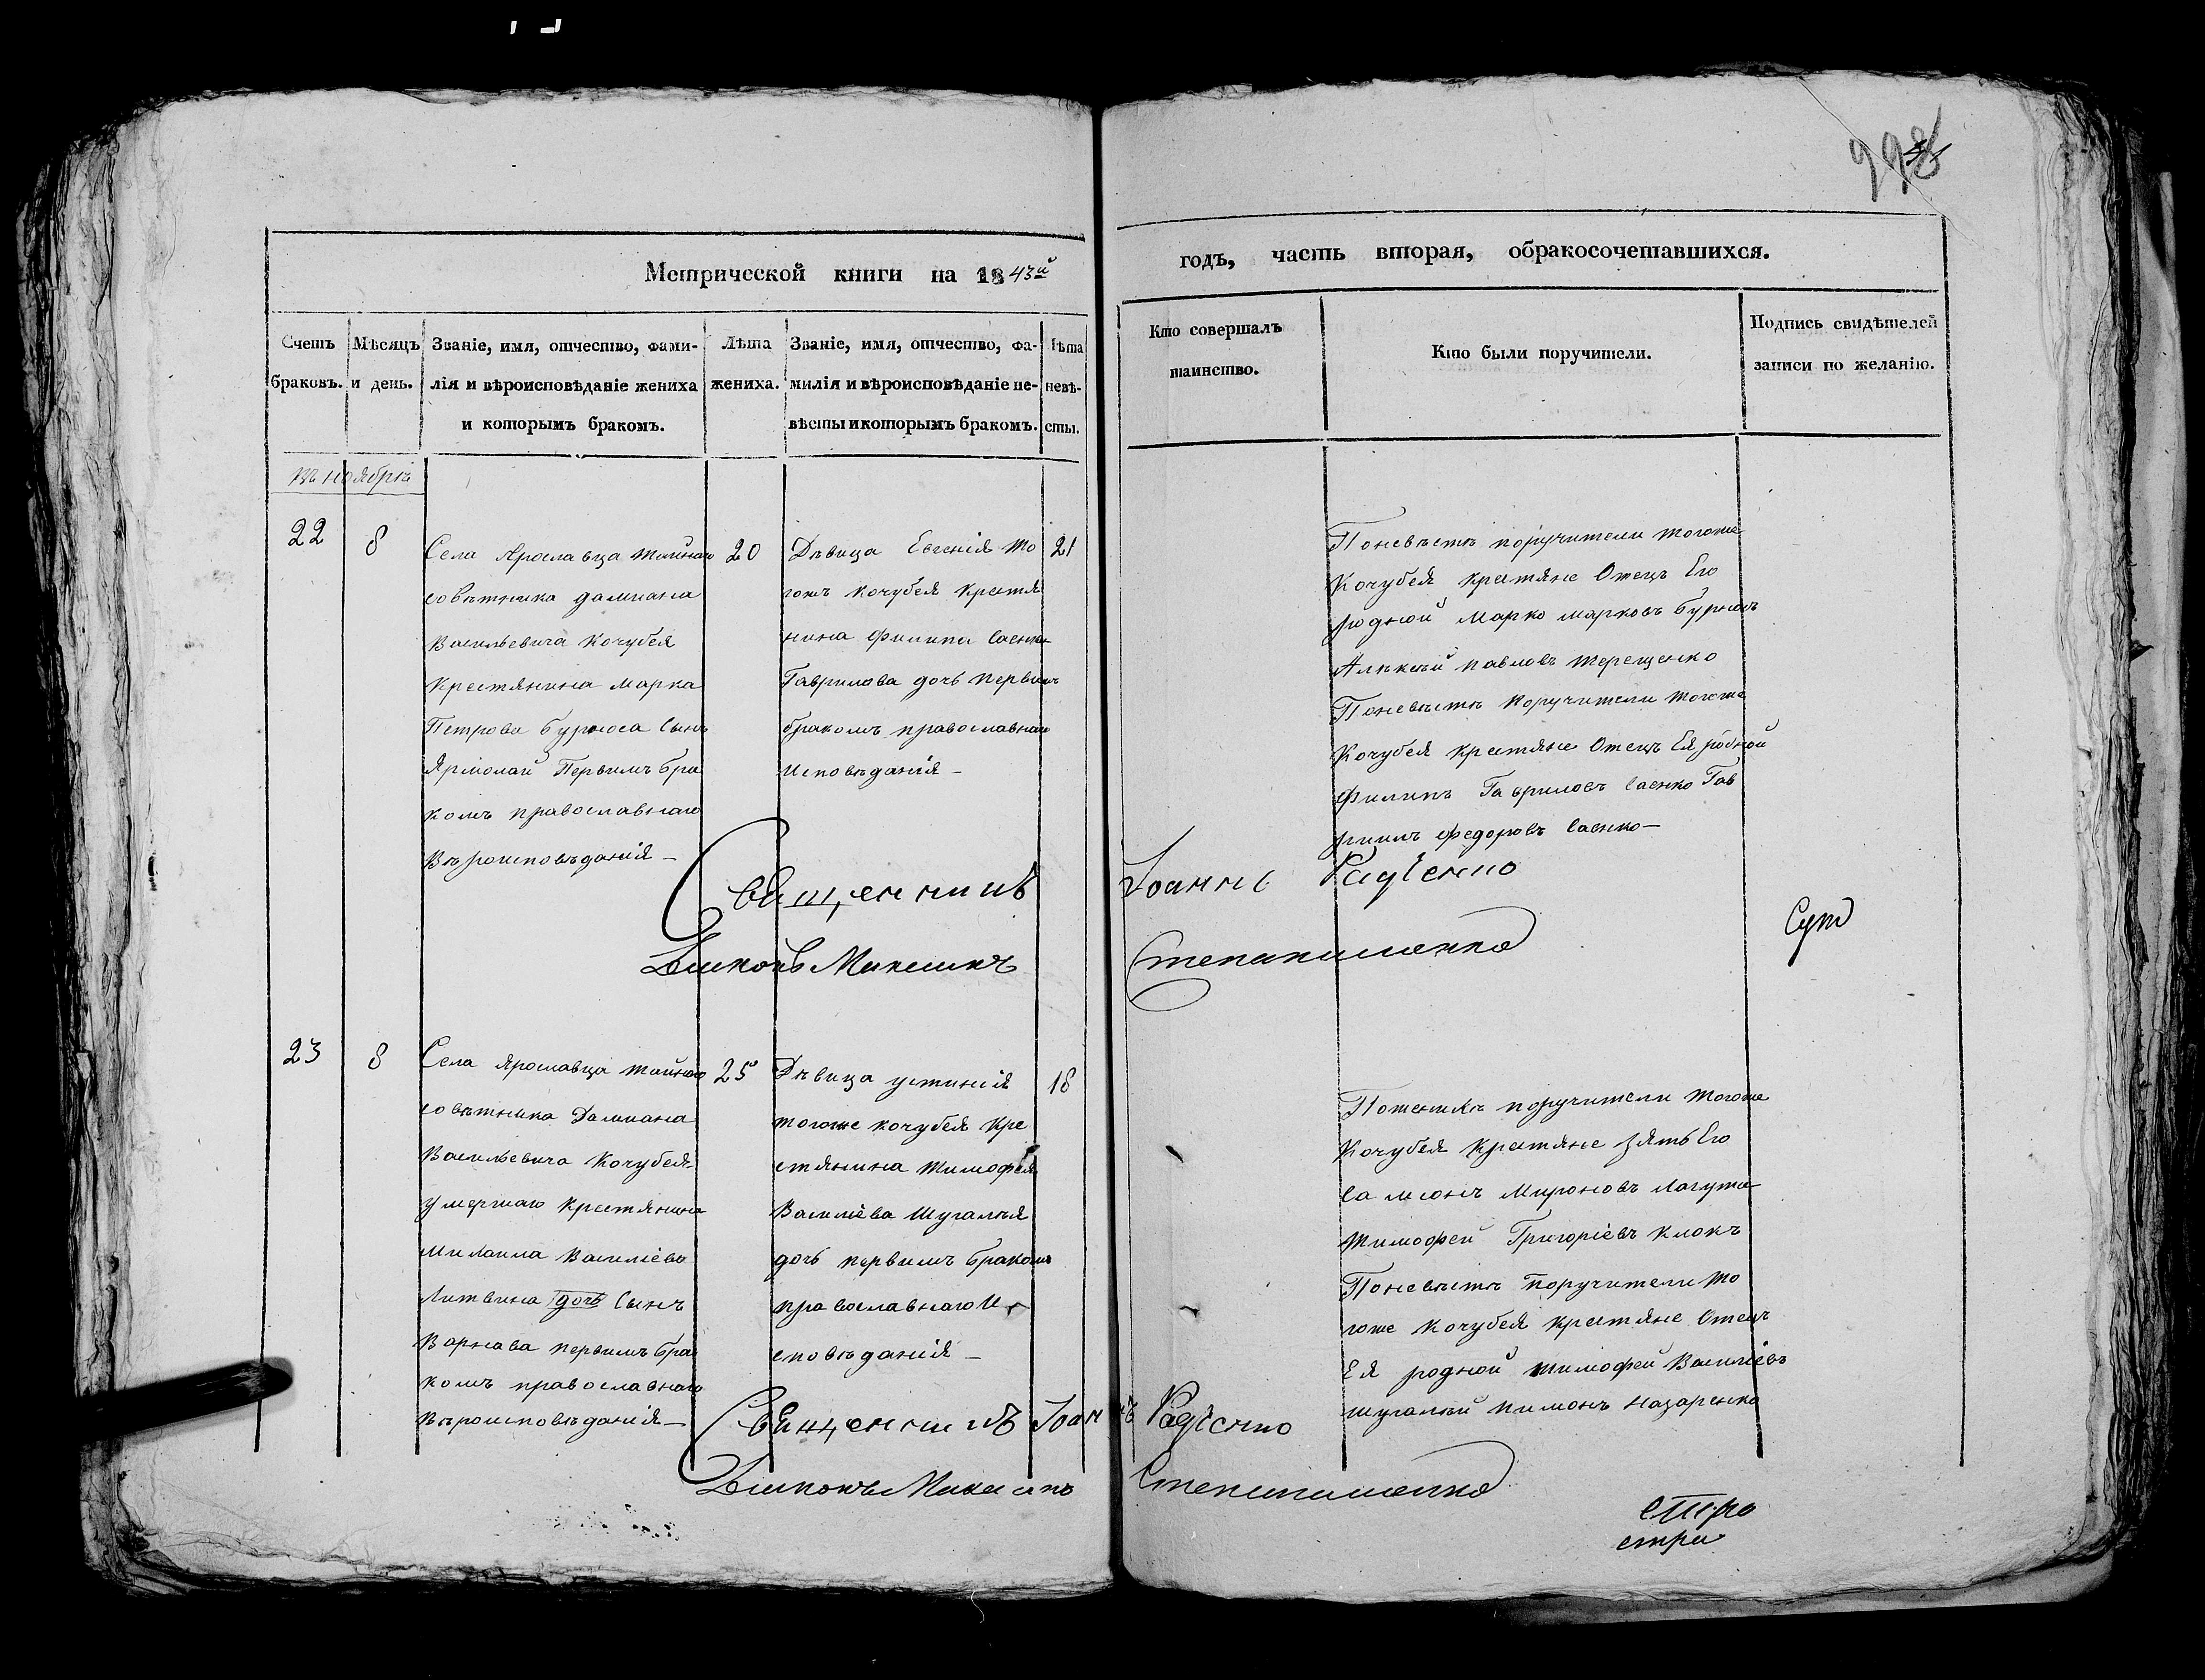 Метрической книги на 1843й
годъ, часть вторая, обракосочетавшихся.
Счетъ браковъ.
Мѣсяцъ и день.
Званіе, имя, отчество, фами-
лія и вѣроисповѣданіе жениха
и которымъ бракомъ.
Лѣта
жениха.
Званіе, имя, отчество, фа-
милія и вѣроисповѣданіе не-
вѣсты и которымъ бракомъ.
Лѣта
невѣ-
сты.
Кто совершалъ
таинство.
Кто были поручители.
Подпись свидѣтелей
записи по желанію.
въ ноябрѣ
22
8
Села Ярославца тайнаго
совѣтника дамиана
Васильевича Кочубея
Крестянина Марка
Петрова бурноса Сынъ
Ярмолай Первимъ бра
комъ православнаго
Вѣроисповѣданія
20
Дѣвица Евгенія то
гожъ Кочубея Крестя
нина Филипа Саенка
Гаврилова дочь первимъ
бракомъ православнаго
Исповѣданія
21
Поневѣстѣ поручители тогоже
Кочубея крестяне Отецъ Его
родной Марко марковъ бурносъ
Алѣксѣй павловъ терещенко
Поневѣстѣ Поручители тогоже
Кочубея крестяне Отецъ Ея родной
Филипъ Гавриловъ Саенко Гав
риилъ федоровъ Саенко
Священникъ Іоаннъ
Діаконъ
Сут
23
8
Села Ярославца тайнаго
совѣтника Дамиана
Васильевича Кочубея
умершаго Крестянина
Михаила Василіева
Литвина дочь Сынъ
Варнава первимъ бра
комъ православнаго
Вѣроисповѣданія
25
Дѣвица устинія
тогоже кочубея Кре
стянина тимофея
Василіева Шугалѣя
дочь первимъ бракомъ
православнаго И
сповѣданія
18
Поженихѣ поручители тогоже
Кочубея Крестяне зять Его
Самсонъ Мироновъ Лагута
тимофей Григоріевъ клокъ
Поневѣстѣ Поручители то
гоже Кочубея крестяне Отецъ
Ея родной тимофей Василіевъ
шугалѣй пимонъ назаренко
Священникъ Іоаннъ
Діаконъ
стро
стри